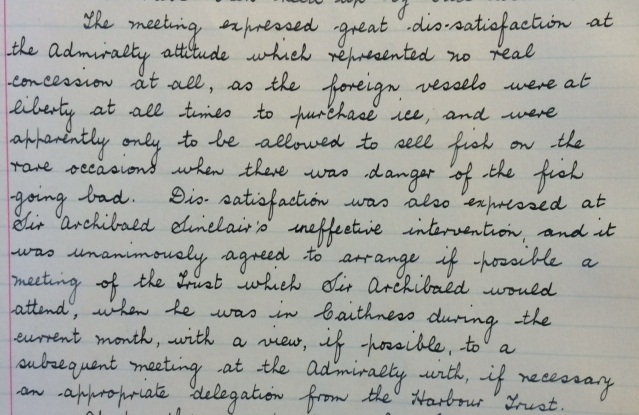 The meeting expressed great dis-satisfaction at
the Admiralty attitude which represented no real
concession at all, as the foreign vessels were at
liberty at all times to purchase ice, and were
apparently only to be allowed to sell fish on the
rare occasions when there was danger of the fish
going bad. Dis-satisfaction was also expressed at
Sir Archibald Sinclair's ineffective intervention and it
was unanimously agreed to arrange if possible a
meeting of the Trust which Sir Archibald would
attend, when he was in Caithness during the
current month, with a view, if possible, to a
subsequent meeting at the Admiralty with, if necessary
an appropriate delegation from the Harbour Trust.